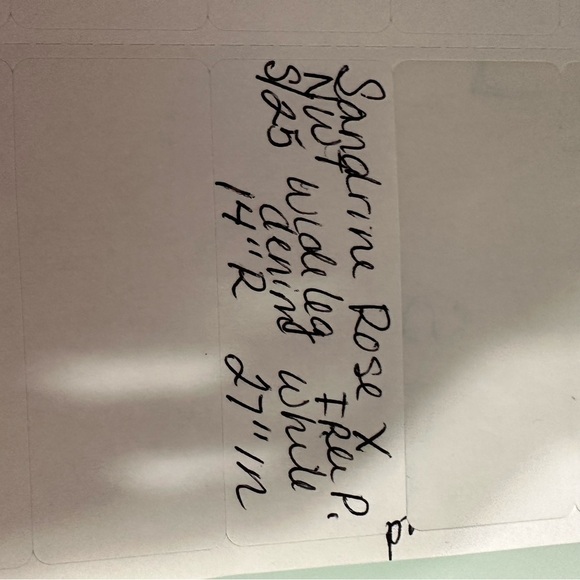 Sandrine Rose X
NWT wide leg Free P.
S/25 denim white
14"R 27" in